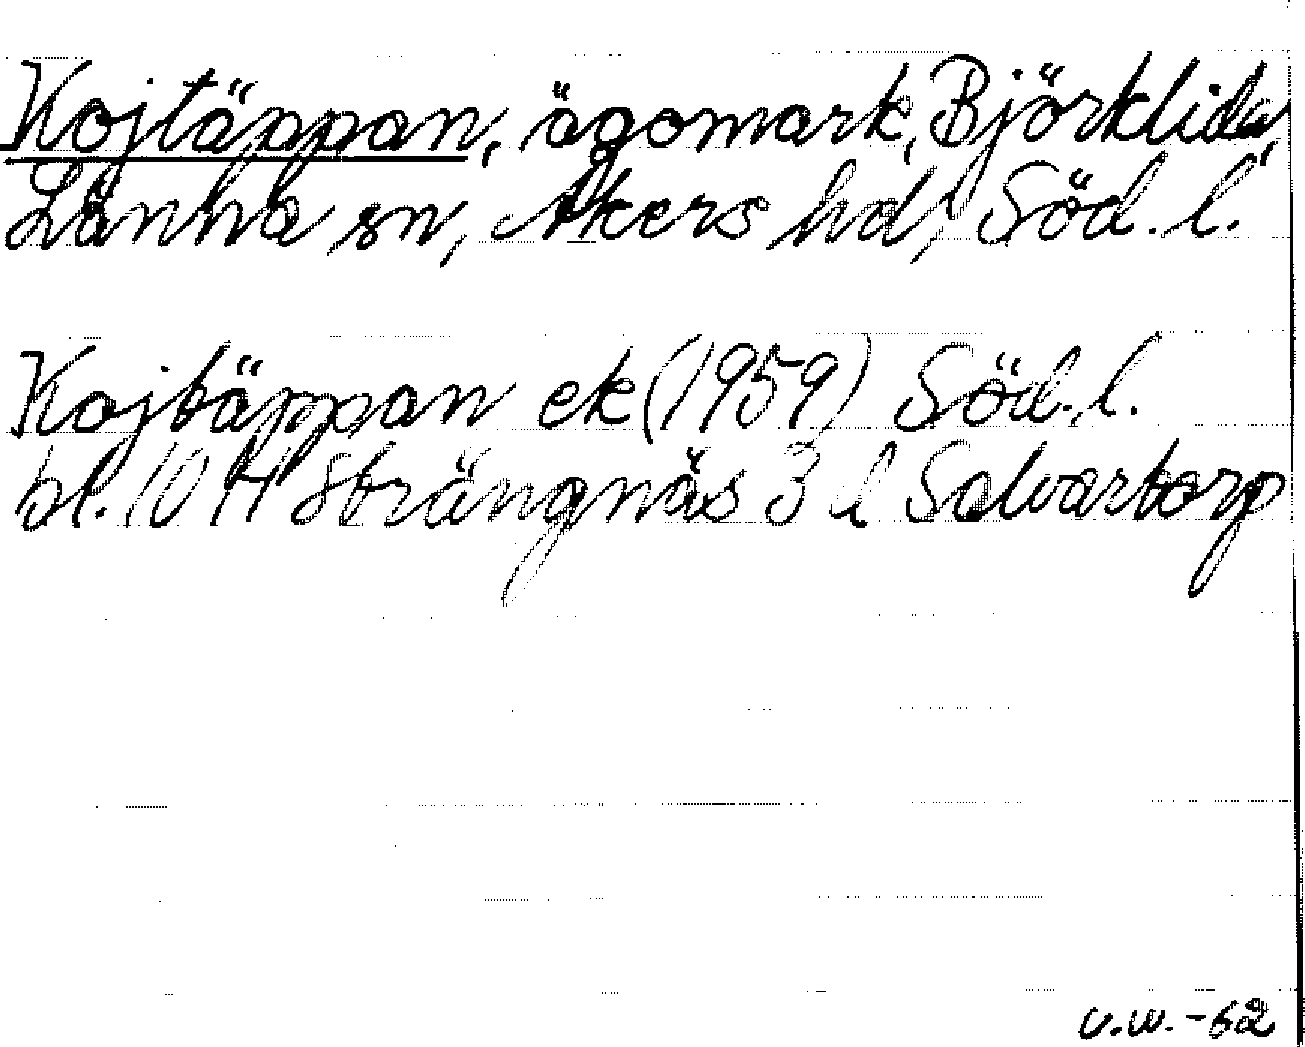 Kojtäppan, ägomark, Björklida,
Länna sn, Åkers hd, Söd. l.
Kojtäppan ek (1959) Söd. l.
bl. 10 H Strängnäs 3 l Solvartorp
v.w. -62